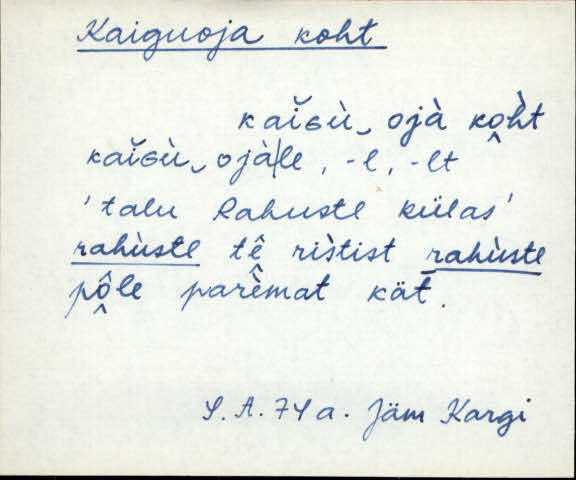 Kaiguoja koht
kaĭɢù‿ ojà ko̭h̀t
kaĭɢù‿ ojà|le, -l, -lt
'talu Rahuste külas'
rahùste tḙ̂ rìstist rahùste
pô̭le parèmat kät.
S.A. 74a. Jäm Kargi